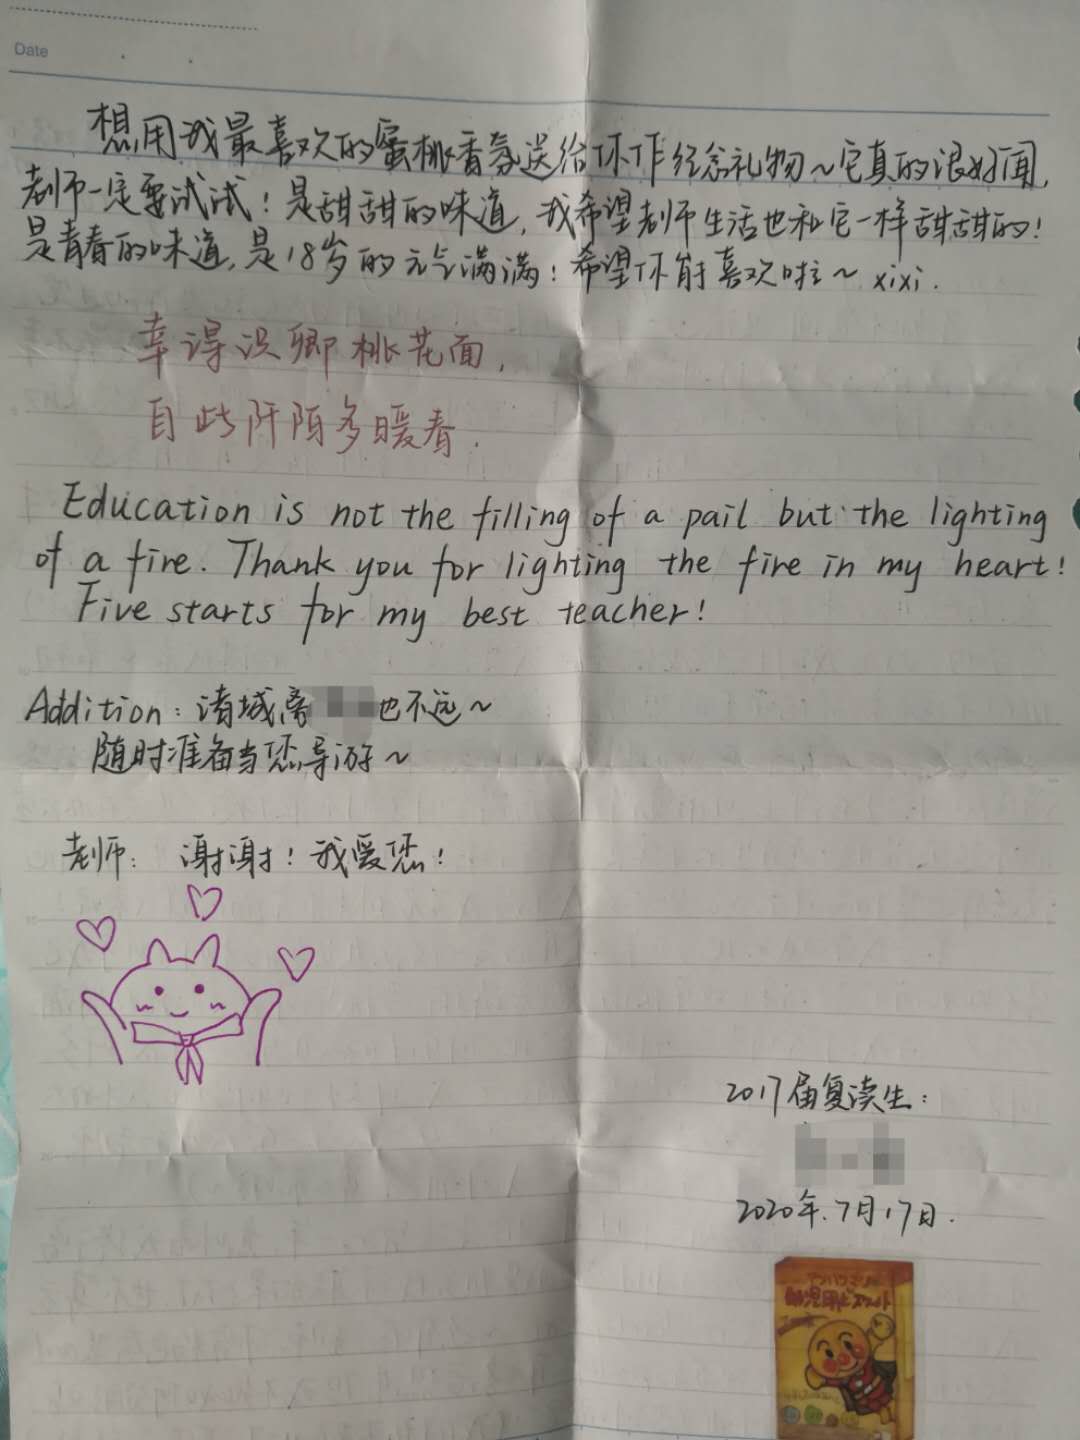 Date
想用我最喜欢的蜜桃香氛送给你作纪念礼物~它真的很好闻,
老师一定要试试!是甜甜的味道,我希望老师生活也和它一样甜甜的!
是青春的味道,是18岁的元气满满!希望你能喜欢啦~ xixi.
幸得识卿桃花面,
自此阡陌多暖春.
Education is not the filling of a pail but the lighting
of a fire. Thank you for lighting the fire in my heart!
Five starts for my best teacher!
Addition: 诸城离 也不远~
随时准备当您导游~
老师: 谢谢!我爱您!
2017届复读生:
2020年.7月17日.